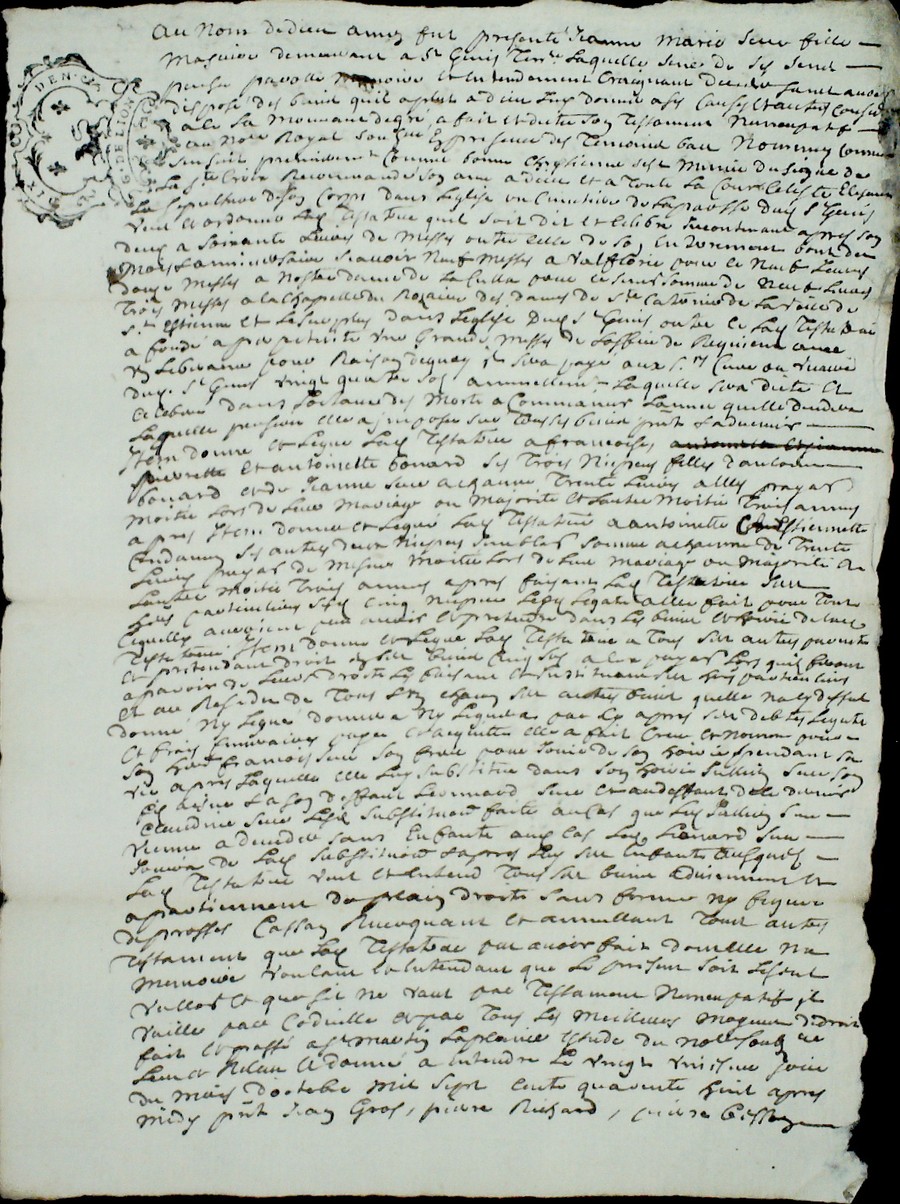 Au Nom de dieu amen fut presente Jeanne Marie Seue fille
Majeure demeurant a St Genis Terre Laquelle Saine de Ses Sens
pensée parolle memoire et Entendement Craignant deceder sans avoir
disposé des biens quil a plut a dieu Luy donner a Ses Causes et autres
a de Sa Mouvance degré, a fait et dicté Son Testament Nuncupatif
au Note Royal Soubzné En presence des Temoins bas Nommes Comme
Sensuit premierement Comme bonne Chrestienne Sest Munie du Signe de
La Ste Croix Recommandé Son ame a dieu et a Toute La Cour Celeste Elisant
La Sepulture de Son Corps dans Leglise ou Cimetiere de La parroisse dud St Genis
Veut et ordonne Lad Testatrice quil Soit dit et Celebré Incontinant apres Son
deces a Soixante Livres de Messes outre Celle de Son Enterrement bout de
Mois et anniversaire Scavoir Neuf Messes a Valfleurie pour le Neuf Livres
douze Messes a Nostre dame de La
Trois Messes a la Chapelle du Rosaire des dames de Ste Caterine de La Ville de
St Estienne et Le Surplus dans Leglise dud St Genis outre Ce Lad Testatrice
a fondé a perpetuité Une Grande Messe de Loffice de Requiem avec
Un Libera pour Raison dequoy il Sera payé aux Srs Curé ou Vicaire
dud St Genis Vingt quatre Sols annuellement Laquelle Sera dite et
Celebrée dans Loctave des Morts a Commancer Lannée quelle decedera
Laquelle pension elle a imposée Sur Tous Ses biens pnts et advenir
Item donne et Legue Lad Testatrice a francoise
pierrette et antoinette bonard Ses Trois Nieces filles dantoine
bonard et de Jeanne Seue a Chacune Trente Livres a Elles payas
Moitié Lors de Leur Mariage ou Majorité et Lautre Moitié Trois annes
apres Item donne et Legue Lad Testatrice a antoinette et Estiennette
Ses autres deux Nieces Semblable Somme a Chacune de Trente
Livres payas de Mesme Moitié Lors de Leur Mariage ou Majorité et
Lautre Moitié Trois annes apres faisant Lad Testatrice Ses
hers particuliers Ses cinq Nieces Lesd Legats a Elles fait pour Tout
Ce quelles auroient peu avoir et pretendre dans Les biens et hoirie de lad
Testatrice Item donne et Legue Lad Testatrice a Tous Ses autres parents
et pretendant droit en Ses biens Cinq Sols a Eux payas Lors quil feront
aparoir de Leurs droits Les faisant et Instituant Ses hers particuliers
et au Residu de Tous Et Chacun Ses autres biens quelle na Cy dessus
donné Ny Legué donnera Ny Leguera par Cy apres Ses debtes Legats
et frais funeraires payes et acquittes elle a fait Creé et Nommé pour
Son her francois Seue Son frere pour Jouir de Son hoirie pendant Sa
Vie apres Laquelle elle Luy Substitue dans Son hoirie Jullien Seue Son
fils ainé a Son deffaut Leonnard Seue et au deffaut de Ce dernier
Claudine Seue Lesd Substitution faite au Cas que Led Jullien Seue
Vienne a deceder Sans Enfants auq Cas Led Leonard Seue
Jouira de Lad Substitution et apres Luy Ses Enfants ausquels
Lad Testatrice Veut et Entend Tous Ses biens adviennent et
apartiennent de plain droits Sans forme Ny figure
de proces Cassant Revoquant et annullant Tous autres
Testament que Lad Testatrice peut avoir fait dont elle na
Memoire Voulant et Entendant que Le present Soit Le Seul
Vallable et que Sil ne Vaut par Testament Nuncupatif il
Vaille par Codicille et par Tous Les Meilleurs Moyens de droit
fait et passé a St Martin Laplaine Estude du Note Soubzné
Leu et Relu et donné a Entendre Le Vingt Unieme jour
du Mois doctobre Mil Sept Cents quarente huit apres
Midy pnt Jean Gros, pierre Richard,